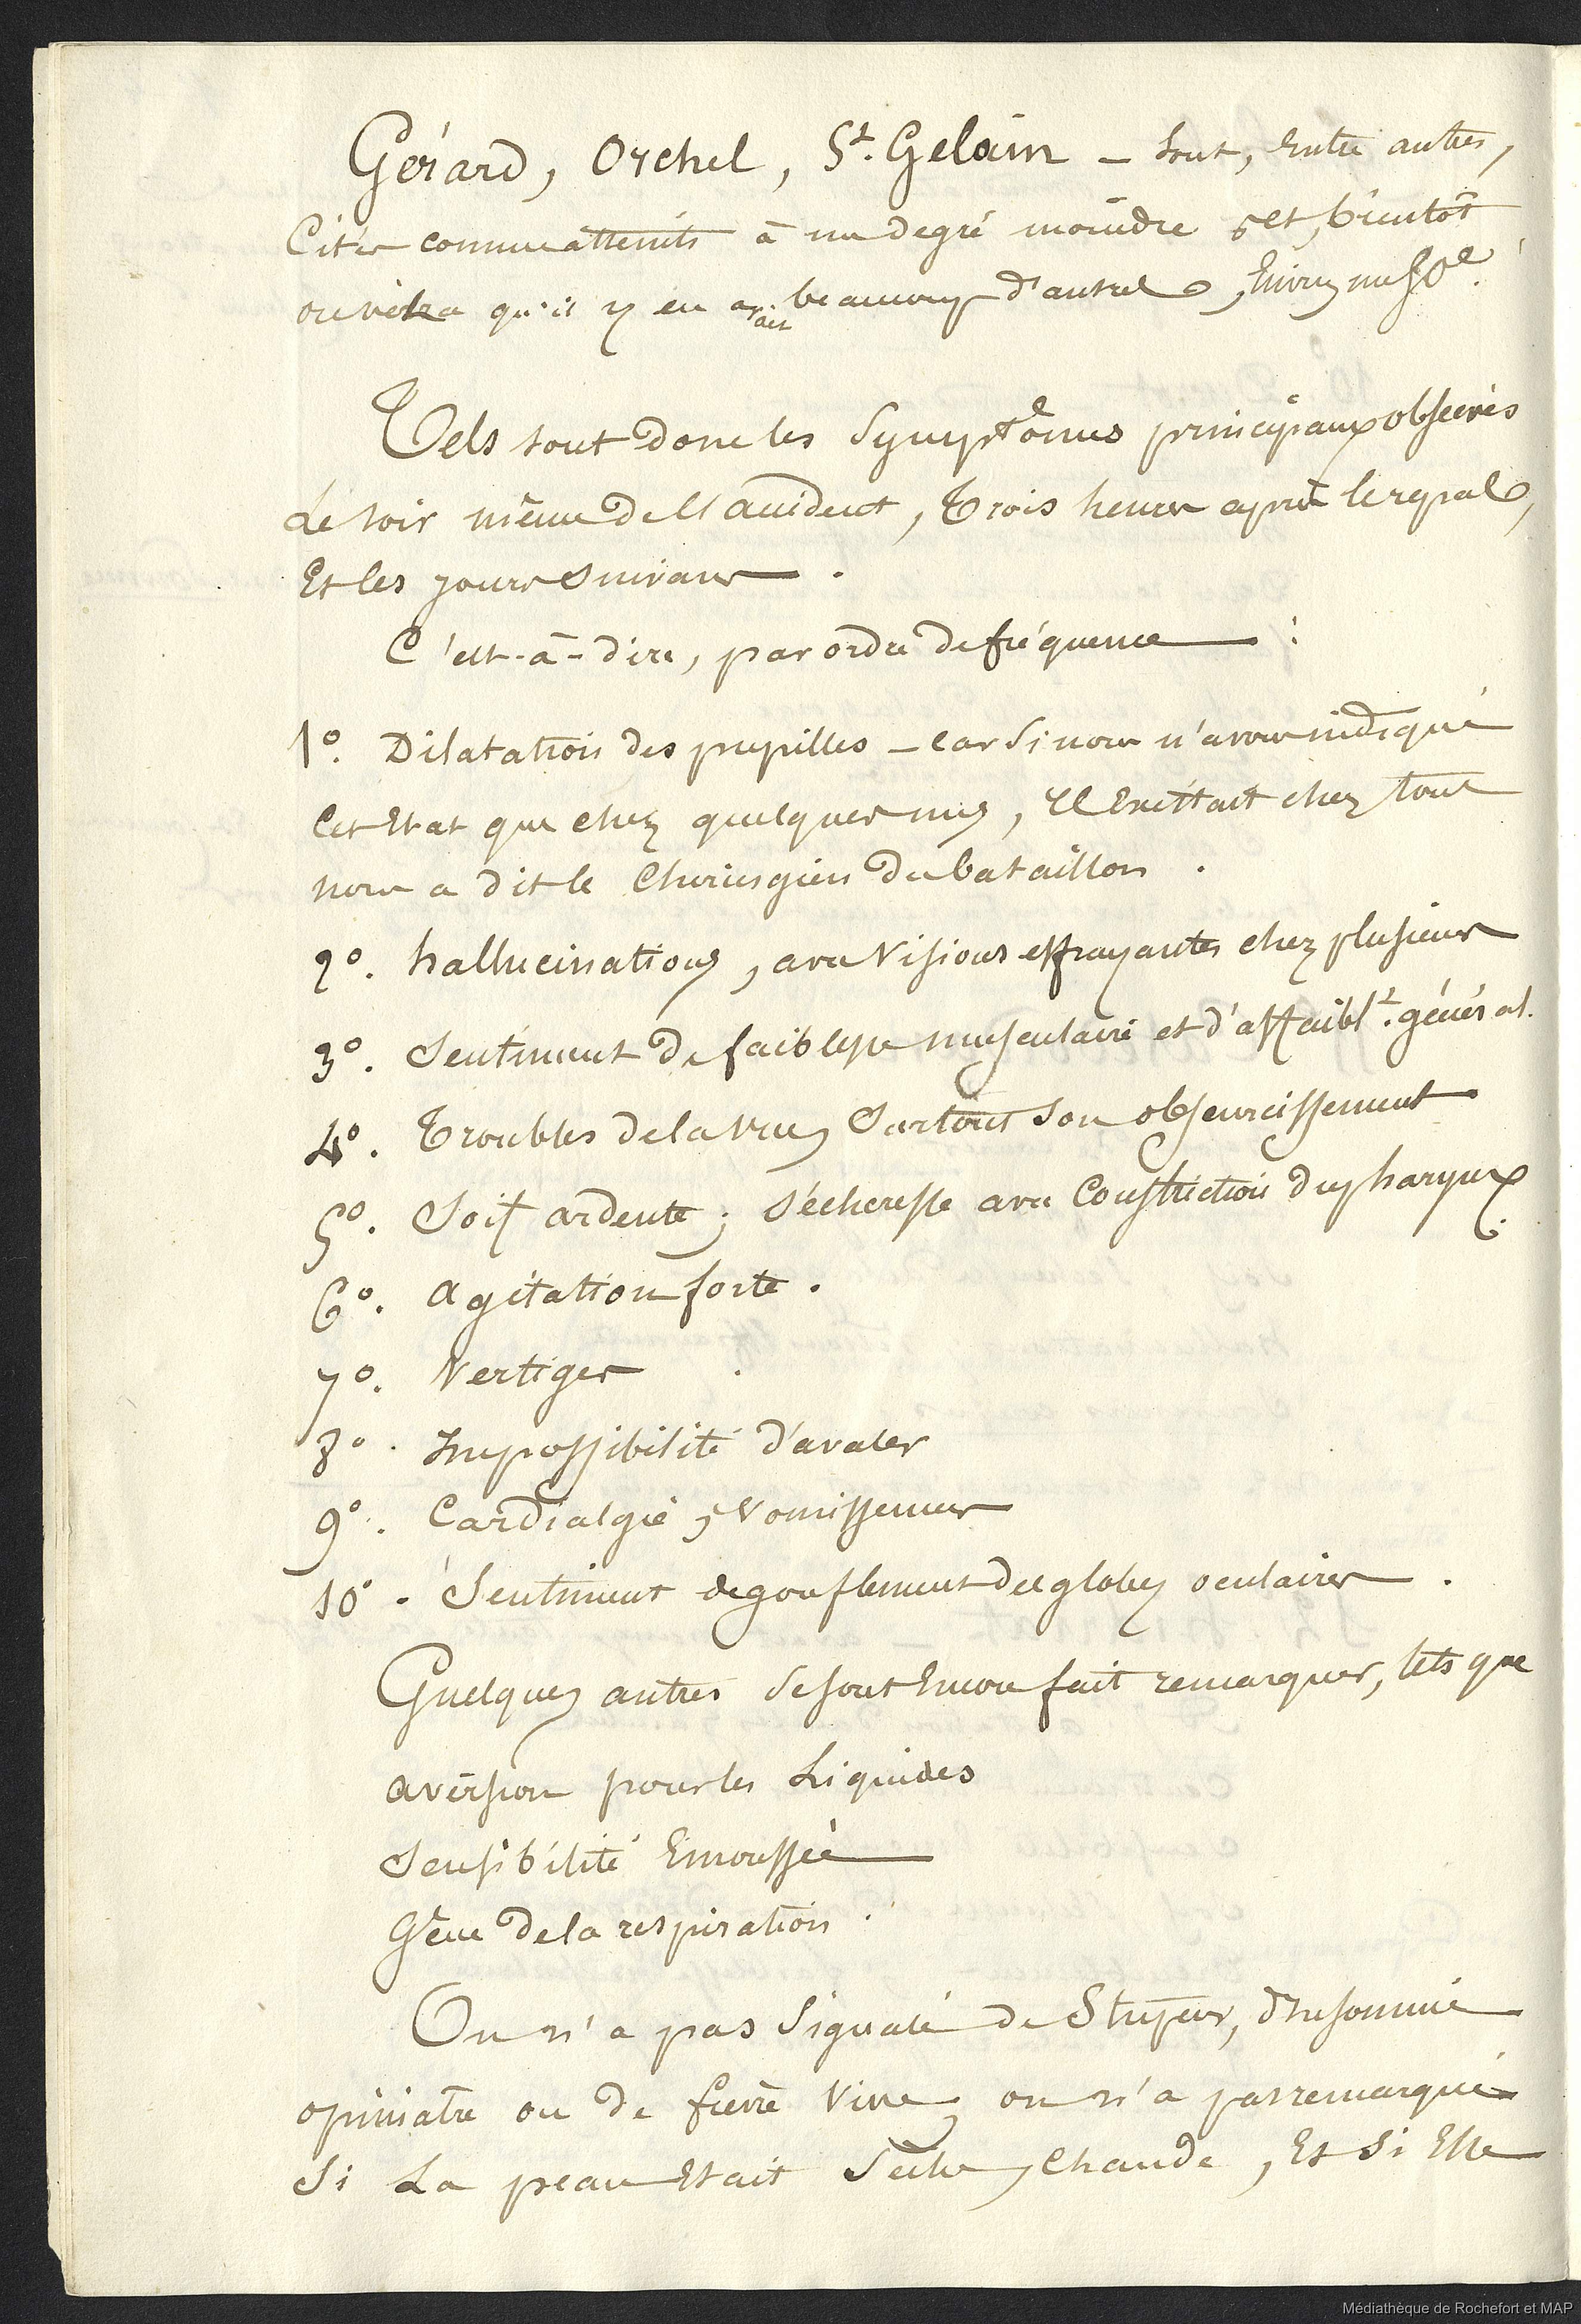 Gérard, Orchel, St. Gelain — sont, entre autres,
Cités comme atteints à un degré moindre, et, bientôt
on verra qu'il y en avait beaucoup d'autres,
Tels sont donc les Symptômes principaux observés
Le soir même de l'accident, Trois heures après le repas,
Et les jours suivans.
C'est-à-dire, par ordre de fréquence :
1°. Dilatation des pupilles — car si nous n'avons indiqué
Cet Etat que chez quelques uns, Il Existait chez tous
nous a dit le Chirurgien du bataillon.
2°. hallucinations, avec Visions effrayantes chez plusieurs
3°. Sentiment de faiblesse musculaire et d'affaiblt. général.
4°. Troubles de la vue, Surtout son obscurcissement
5°. Soif ardente; sécheresse avec Constriction du pharynx.
6°. Agitation forte.
7°. Vertiges.
8°. Impossibilité d'avaler
9°. Cardialgie, Vomissemens
10°. Sentiment de gonflement des globes oculaires.
Quelques autres se sont Encore fait remarquer, tels que
aversion pour les Liquides
Sensibilité Emoussée
Gêne de la respiration.
On n'a pas Signalé de Stupeur, d'Insomnie
opiniatre ou de fievre Vive, on n'a pas remarqué
Si La peau Etait Sèche, Chaude, Et Si Elle
Médiathèque de Rochefort et MAP